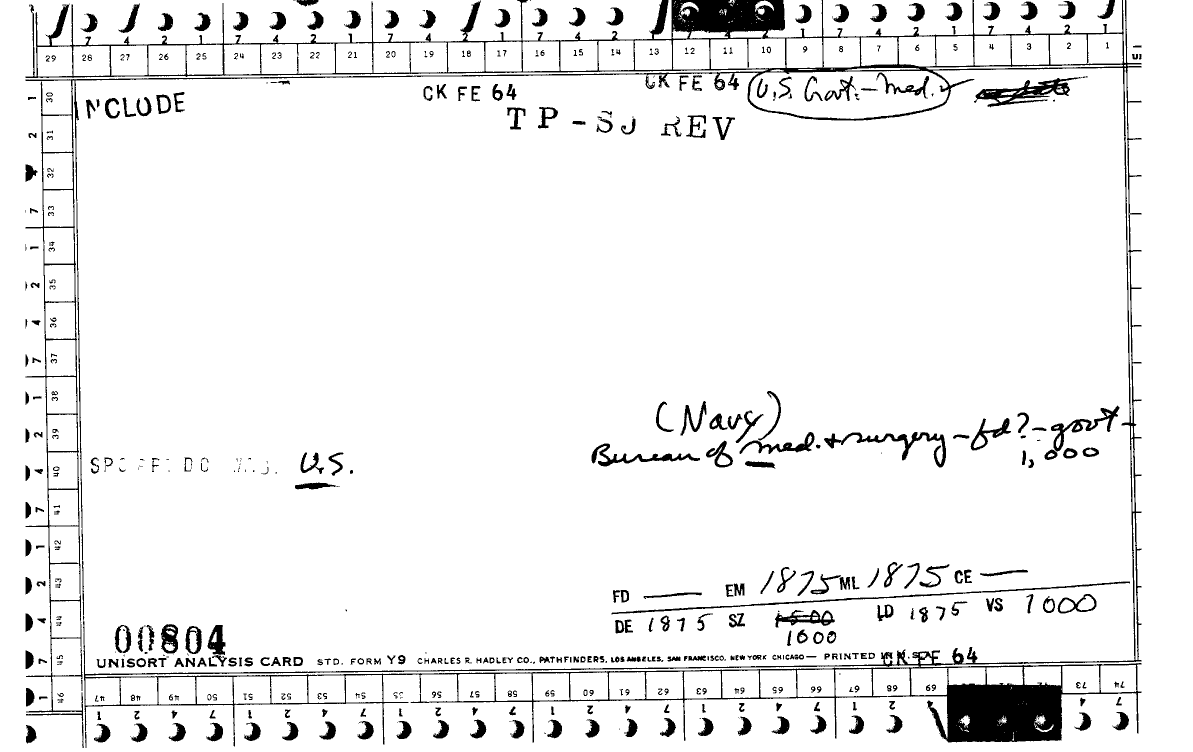 7 4 2 1 7 4 2 1 7 4 2 1 7 4 2 1 7 4 2 1 7 4 2 1
29 28 27 26 25 24 23 22 21 20 19 18 17 16 15 14 13 12 11 10 9 8 7 6 5 4 3 2 1
INCLUDE CK FE 64 CK FE 64 U.S. Govt. - med.
TP-SJ REV
1 30
2 31
32
7 33
1 34
2 35
4 36
7 37
1 38
2 39
4 40
7 41
1 42
2 43
4 44
7 45
1 46
(Navy)
Bureau of med. + surgery - fd? - govt -
1,000
U.S.
FD — EM 1875 ML 1875 CE —
DE 1875 SZ 1500 LD 1875 VS 1000
1000
00804
UNISORT ANALYSIS CARD STD. FORM Y9 CHARLES R. HADLEY CO., PATHFINDERS, LOS ANGELES, SAN FRANCISCO, NEW YORK CHICAGO — PRINTED IN U.S.A.
CK FE 64
47 48 49 50 51 52 53 54 55 56 57 58 59 60 61 62 63 64 65 66 67 68 69 73 74
1 2 4 7 1 2 4 7 1 2 4 7 1 2 4 7 1 2 4 7 1 2 4 4 7